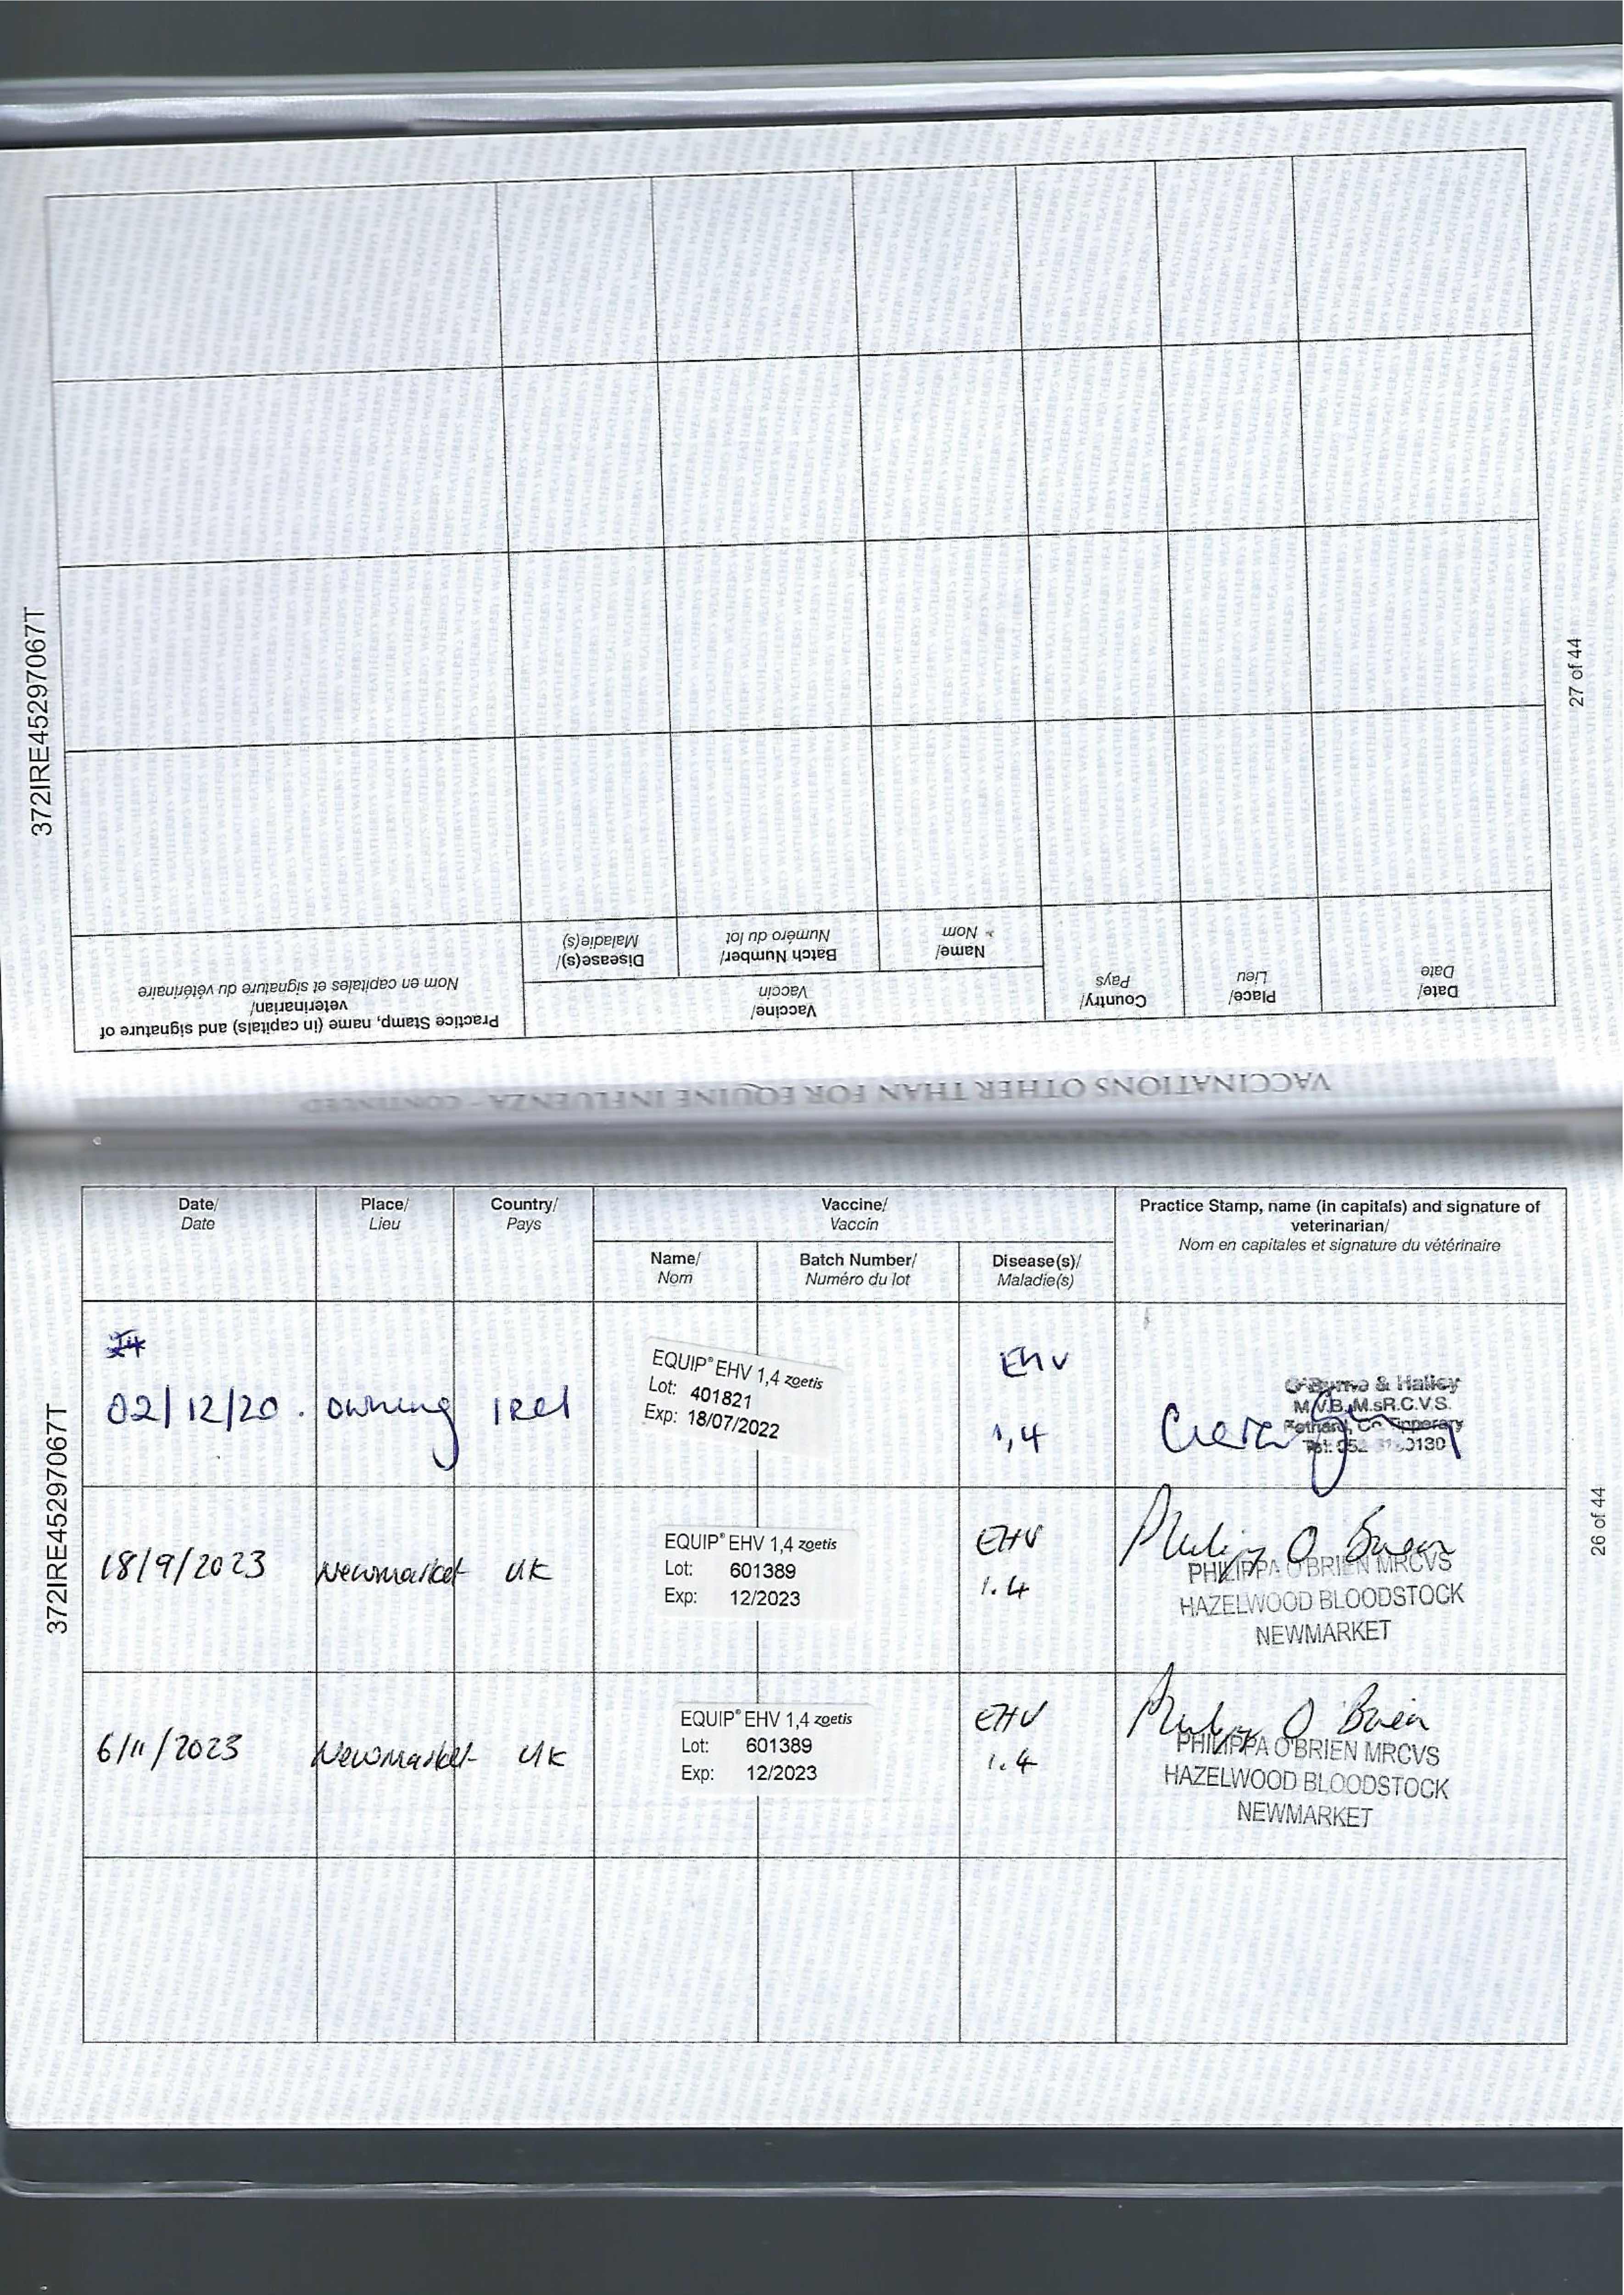 372IRE45297067T
27 of 44
VACCINATIONS OTHER THAN FOR EQUINE INFLUENZA - CONTINUED
Date/
Date
Place/
Lieu
Country/
Pays
Vaccine/
Vaccin
Name/
Nom
Batch Number/
Numéro du lot
Disease(s)/
Maladie(s)
Practice Stamp, name (in capitals) and signature of
veterinarian/
Nom en capitales et signature du vétérinaire
372IRE45297067T
26 of 44
Date/
Date
Place/
Lieu
Country/
Pays
Vaccine/
Vaccin
Name/
Nom
Batch Number/
Numéro du lot
Disease(s)/
Maladie(s)
Practice Stamp, name (in capitals) and signature of
veterinarian/
Nom en capitales et signature du vétérinaire
02/12/20. Owning Irel
EQUIP® EHV 1,4 zoetis
Lot: 401821
Exp: 18/07/2022
EHV
1,4
O'Byrne & Halley
M.V.B. M.sR.C.V.S.
Fethard, Co Tipperary
Tel: 052
18/9/2023 Newmarket UK
EQUIP® EHV 1,4 zoetis
Lot: 601389
Exp: 12/2023
EHV
1.4
Philippa O Brien
PHILIPPA O'BRIEN MRCVS
HAZELWOOD BLOODSTOCK
NEWMARKET
6/11/2023 Newmarket UK
EQUIP® EHV 1,4 zoetis
Lot: 601389
Exp: 12/2023
EHV
1.4
Philippa O Brien
PHILIPPA O'BRIEN MRCVS
HAZELWOOD BLOODSTOCK
NEWMARKET